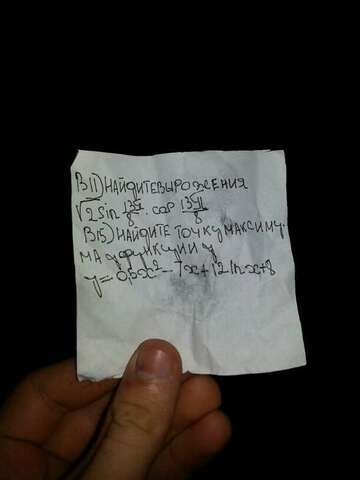 B11) НАЙДИТЕ ВЫРОЖЕНИЯ
√2 sin 13π/8 · cos 13π/8
B15) НАЙДИТЕ ТОЧКУ МАКСИМУ-
МА ФУНКЦИИ y
y = 0,5x² - 7x + 12 ln x + 8